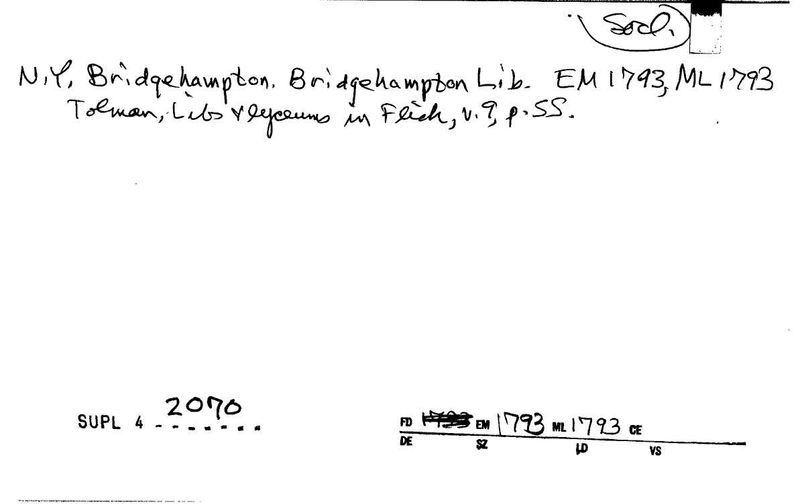 Socl.
N.Y. Bridgehampton. Bridgehampton Lib. EM 1793, ML 1793
Tolman, Libs & lyceums in Flick, v. 9, p. 55.
SUPL 4 2070
FD 1793 EM 1793 ML 1793 CE
DE SZ LD VS